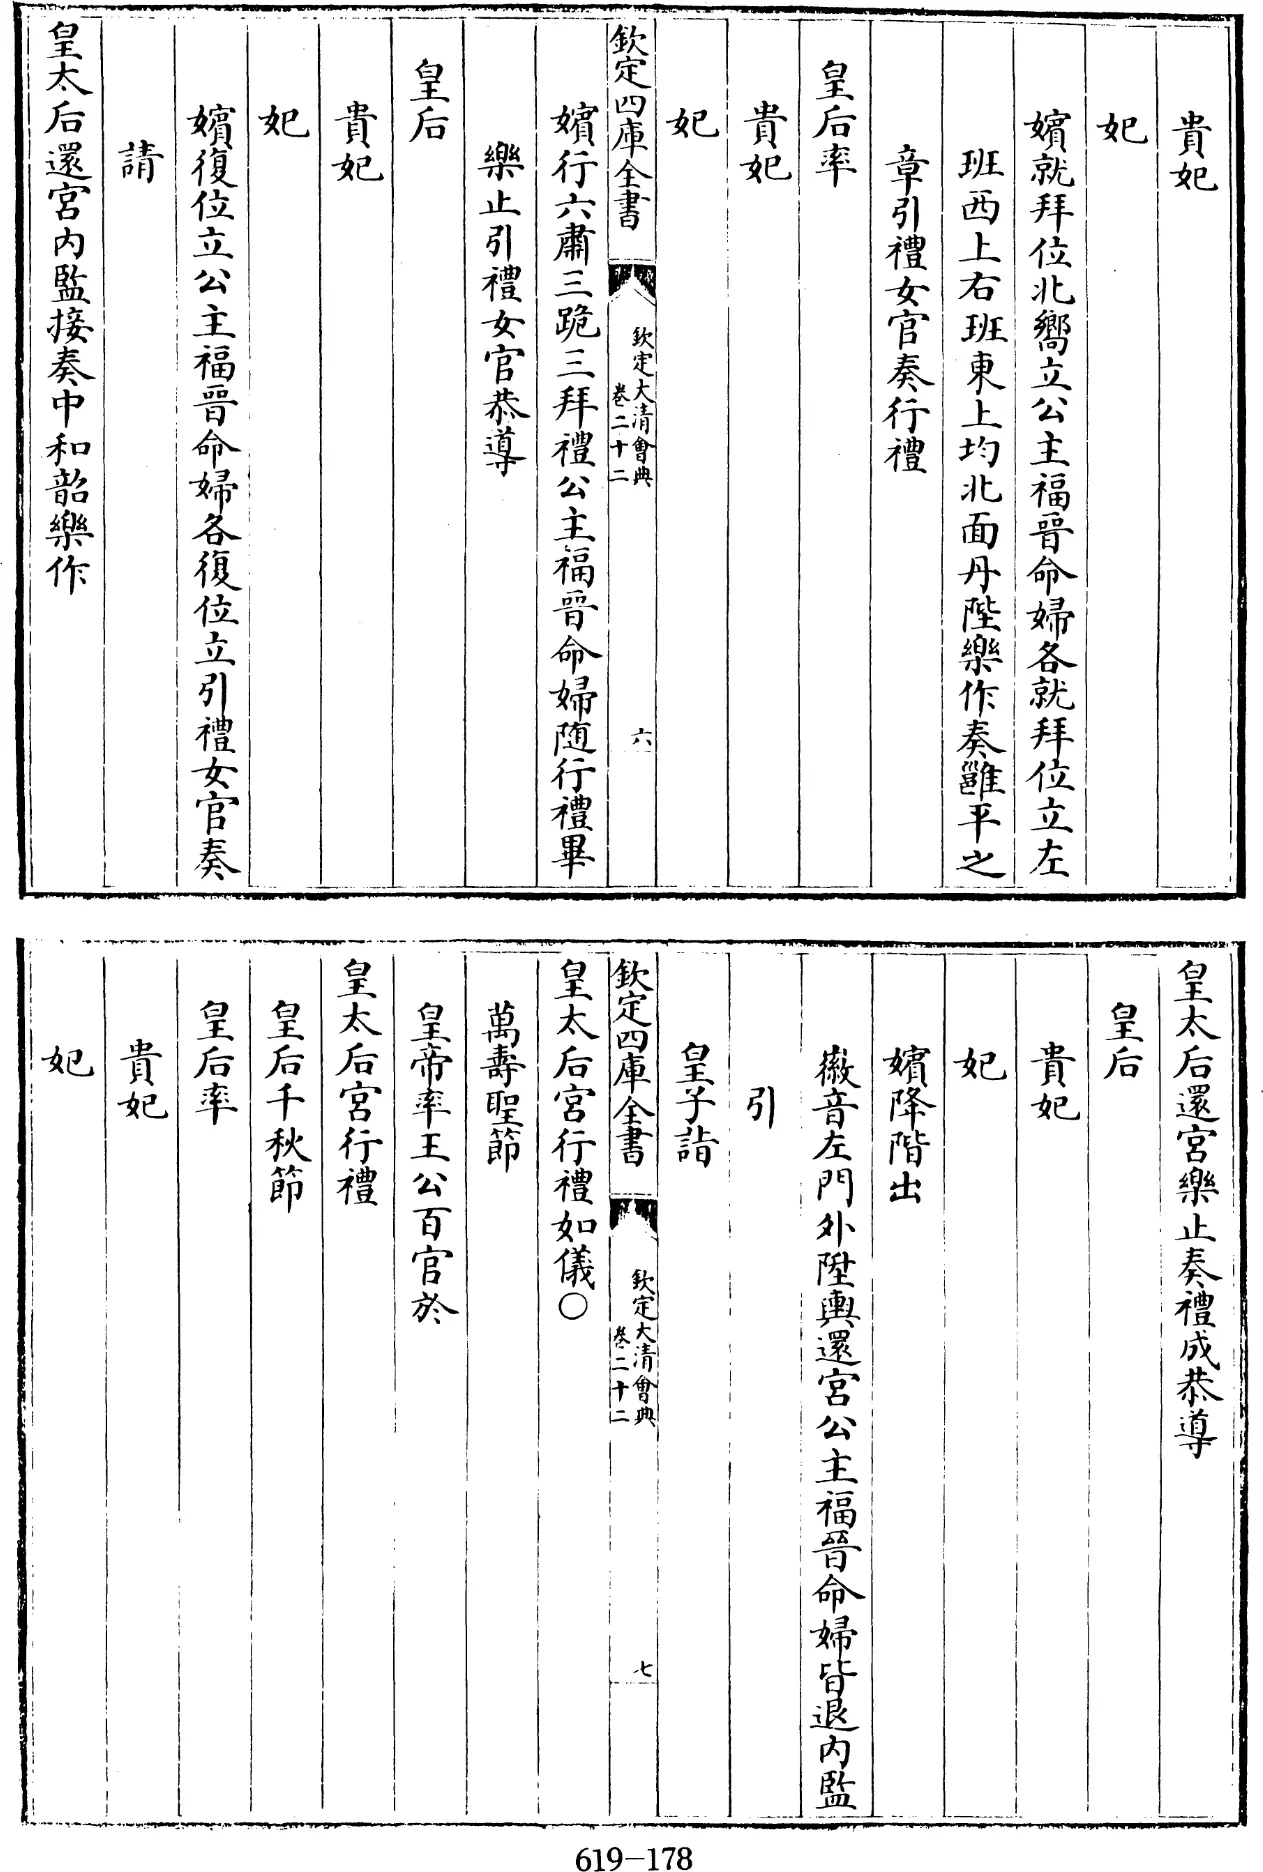 貴妃
妃
嬪就拜位北嚮立公主福晉命婦各就拜位立左
班西上右班東上均北面丹陛樂作奏雝平之
章引禮女官奏行禮
皇后率
貴妃
妃
欽定四庫全書
欽定大清會典
卷二十二
六
嬪行六肅三跪三拜禮公主福晉命婦随行禮畢
樂止引禮女官恭導
皇后
貴妃
妃
嬪復位立公主福晉命婦各復位立引禮女官奏
請
皇太后還宮内監接奏中和韶樂作
皇太后還宮樂止奏禮成恭導
皇后
貴妃
妃
嬪降階出
徽音左門外陞輿還宮公主福晉命婦皆退内監
引
皇子詣
欽定四庫全書
欽定大清會典
卷二十二
七
皇太后宮行禮如儀○
萬壽聖節
皇帝率王公百官於
皇太后宮行禮
皇后千秋節
皇后率
貴妃
妃
619-178